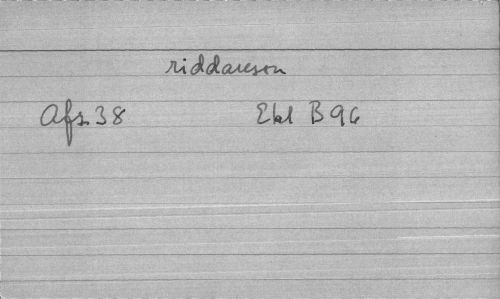 riddareson
Afs 38 Ekl B 96